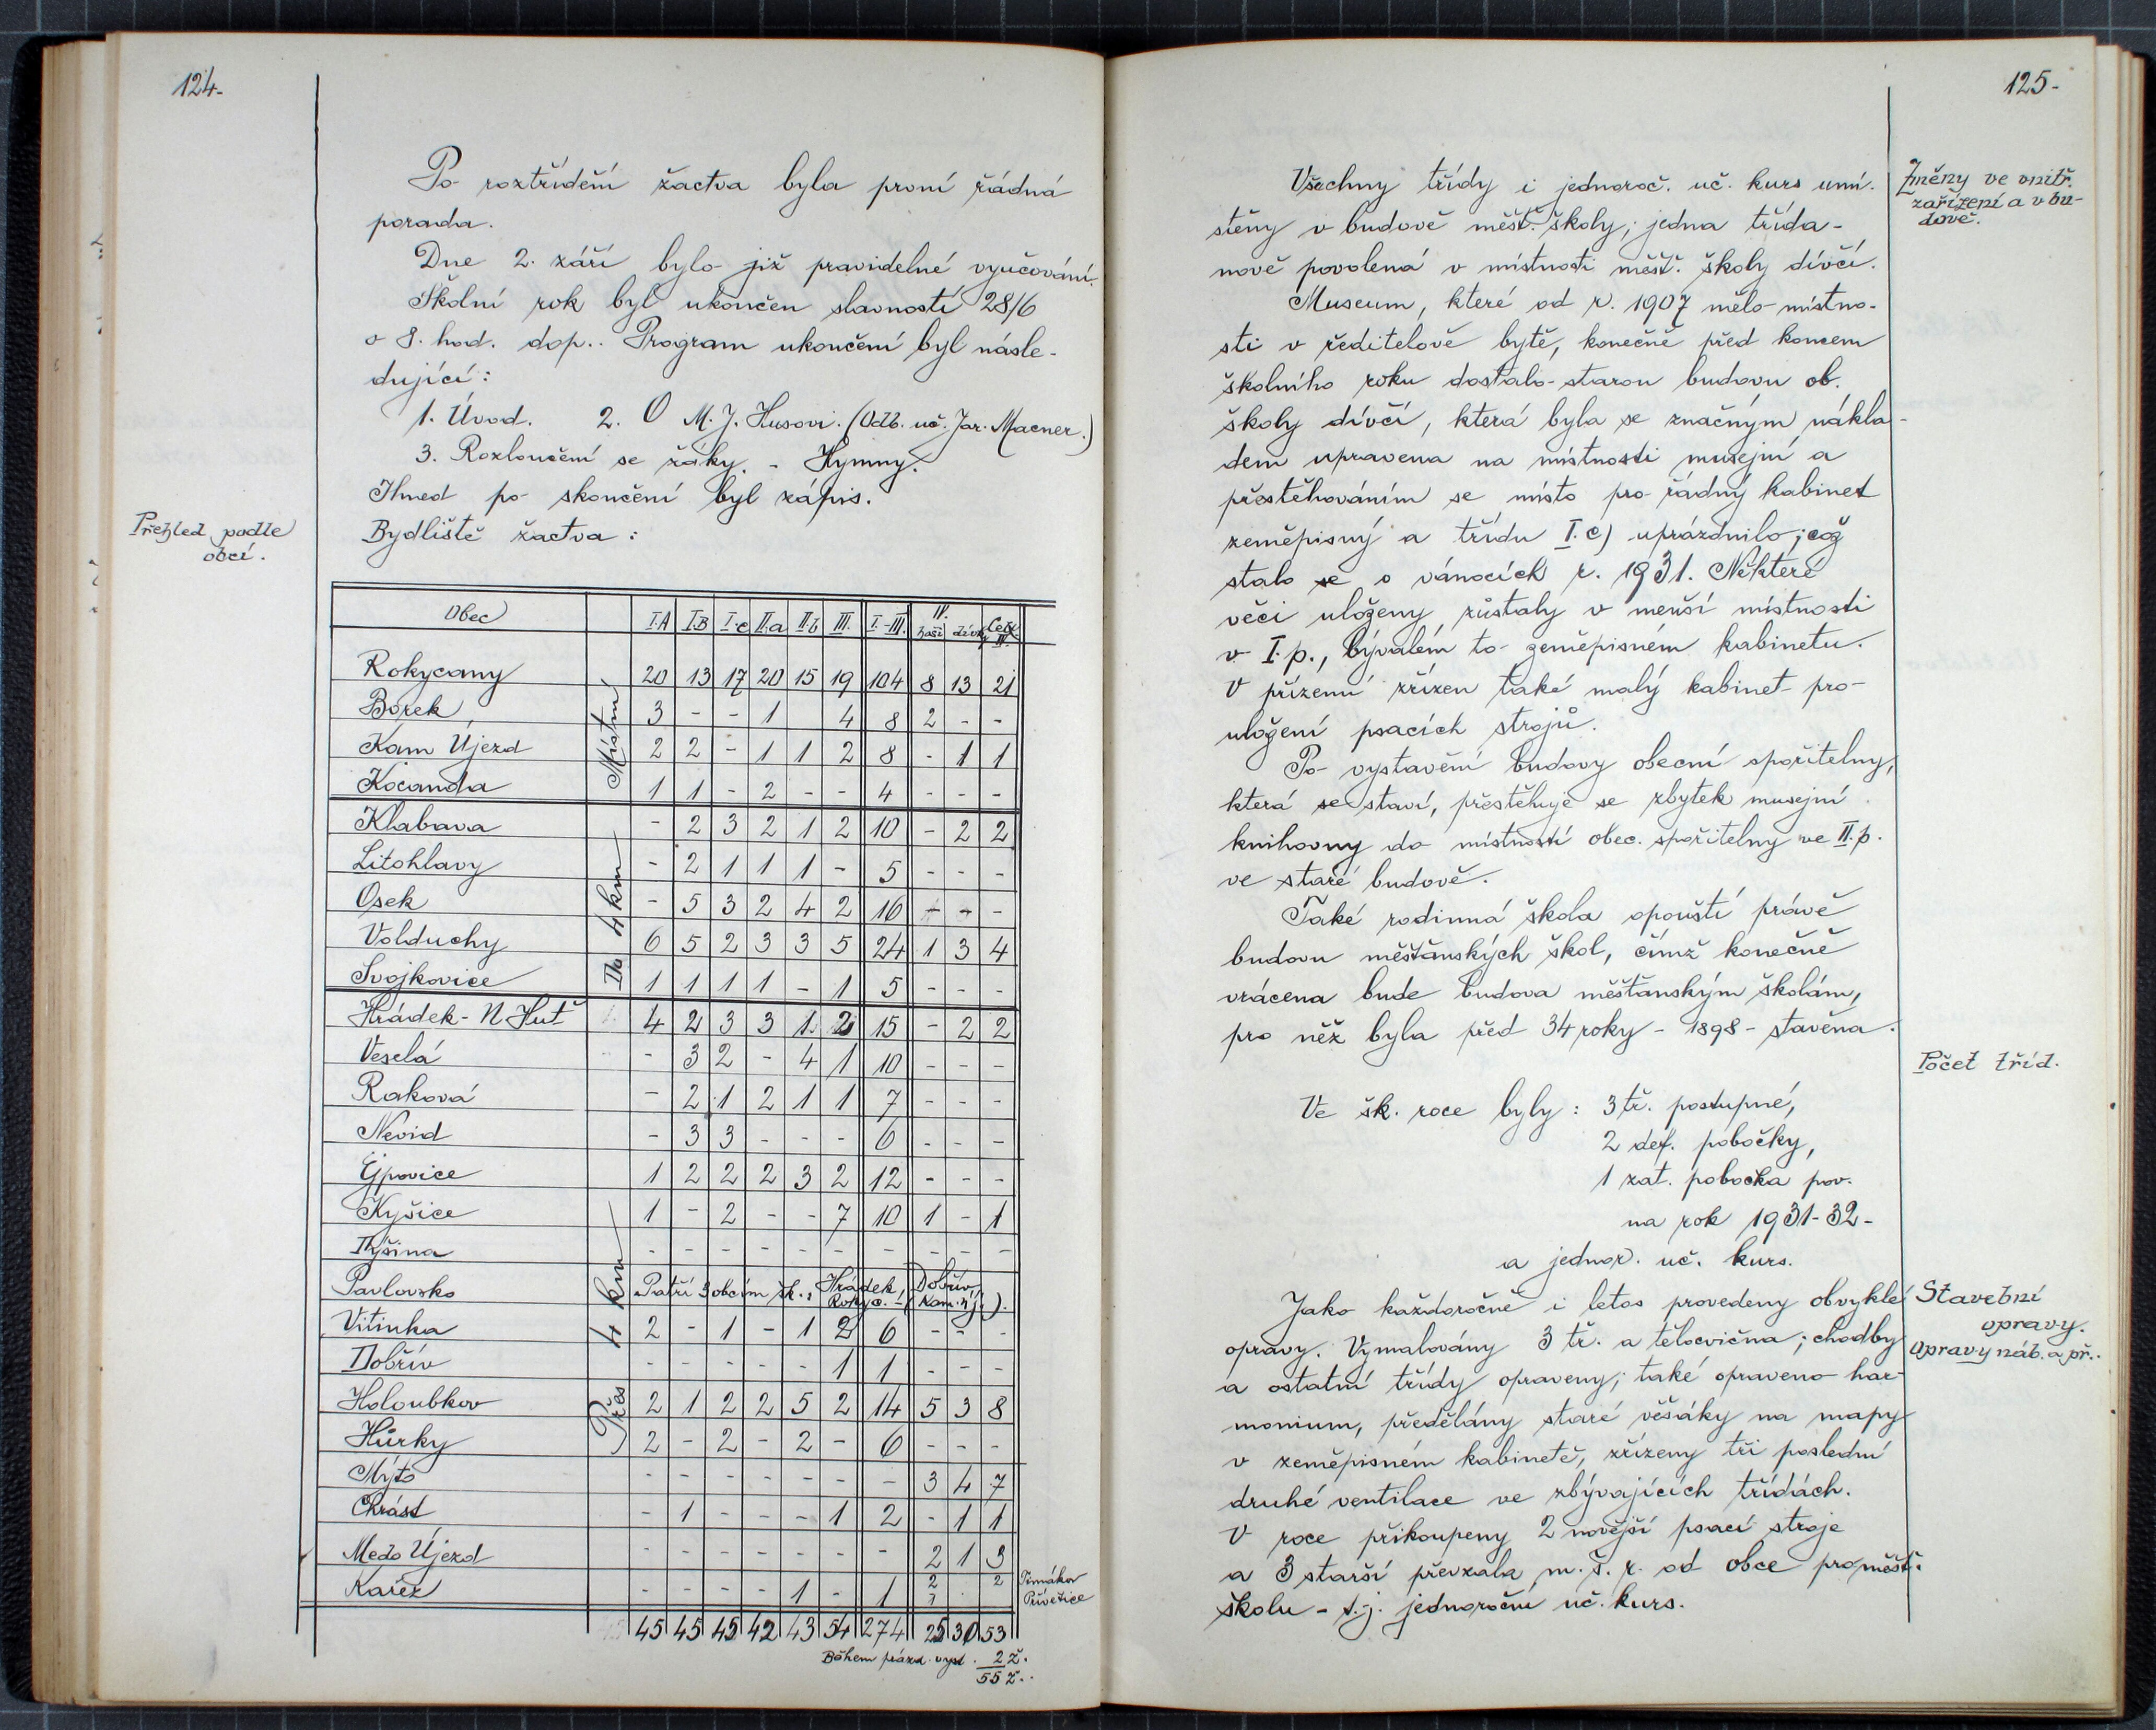 124.-
Po roztřídění žactva byla první řádná
porada.
Dne 2. září bylo již pravidelné vyučování.
Školní rok byl ukončen slavností 28/6
o 8. hod. dop.. Program ukončení byl násle-
dující:
1. Úvod. 2. O M. J. Husovi. (Odb. uč. Jar. Macner.)
3. Rozloučení se žáky. - Hymny.
Ihned po skončení byl zápis.
Přehled podle
obcí.
Bydliště žactva:
Obec I.A I.B I.c II.a II.b III. I.-III. IV. hoši dívky Celk. IV.
Místní
Rokycany 20 13 17 20 15 19 104 8 13 21
Borek 3 - - 1 4 8 2 - -
Kam Újezd 2 2 - 1 1 2 8 - 1 1
Kocanda 1 1 - 2 - - 4 - - -
Do 4 km
Klabava - 2 3 2 1 2 10 - 2 2
Litohlavy - 2 1 1 1 - 5 - - -
Osek - 5 3 2 4 2 16 - - -
Volduchy 6 5 2 3 3 5 24 1 3 4
Svojkovice 1 1 1 1 - 1 5 - - -
Přes 4 km
Hrádek - N Huť 4 2 3 3 1 2 15 - 2 2
Veselá - 3 2 - 4 1 10 - - -
Raková - 2 1 2 1 1 7 - - -
Nevid - 3 3 - - - 6 - - -
Ejpovice 1 2 2 2 3 2 12 - - -
Kyšice 1 - 2 - - 7 10 1 - 1
Dýšina - - - - - - - - - -
Pavlovsko Patří 3 obcím šk.: Hrádek, Dobřív,
Rokyc. - (Kam. új.).
Vitinka 2 - 1 - 1 2 6 - - -
Dobřív - - - - - 1 1 - - -
Holoubkov 2 1 2 2 5 2 14 5 3 8
Hůrky 2 - 2 - 2 - 6 - - -
Mýto - - - - - - - 3 4 7
Chrást - 1 - - - 1 2 - 1 1
Medo Újezd - - - - - - - 2 1 3
Kařez - - - - 1 - 1 2 . 2
Přívětice
45 45 45 42 43 54 274 25 30 53
Během prázd. vyst. 2 ž.
55 ž.
125-
Všechny třídy i jednoroč. uč. kurs umí-
stěny v budově měšť. školy; jedna třída -
nově povolená v místnosti měšť. školy dívčí.
Změny ve vnitř.
zařízení a v bu-
dově.
Museum, které od r. 1907 mělo místno-
sti v ředitelově bytě, konečně před koncem
školního roku dostalo starou budovu ob.
školy dívčí, která byla se značným nákla-
dem upravena na místnosti musejní a
přestěhováním se místo pro řádný kabinet
zeměpisný a třídu I.c) uprázdnilo; což
stalo se o vánocích r. 1931. Některé
věci uloženy, zůstaly v menší místnosti
v I. p., bývalém to zeměpisném kabinetu.
V přízemí zřízen také malý kabinet pro
uložení psacích strojů.
Po vystavění budovy obecní spořitelny,
která se staví, přestěhuje se zbytek musejní
knihovny do místností obec. spořitelny ve II. p.
ve staré budově.
Také rodinná škola opouští právě
budovu měšťanských škol, čímž konečně
vrácena bude budova měšťanským školám,
pro něž byla před 34 roky - 1898 - stavěna.
Počet tříd.
Ve šk. roce byly: 3 tř. postupné,
2 def. pobočky,
1 zat. pobočka pov.
na rok 1931-32-
a jednor. uč. kurs.
Jako každoročně i letos provedeny obvyklé
opravy. Vymalovány 3 tř. a tělocvična; chodby
a ostatní třídy opraveny; také opraveno har-
monium, předělány staré věšáky na mapy
v zeměpisném kabinetě, zřízeny tři poslední
druhé ventilace ve zbývajících třídách.
V roce přikoupeny 2 novější psací stroje
a 3 starší převzala m. š. r. od obce pro měšť.
školu - t. j. jednoroční uč. kurs.
Stavební
opravy.
Opravy náb. a př..